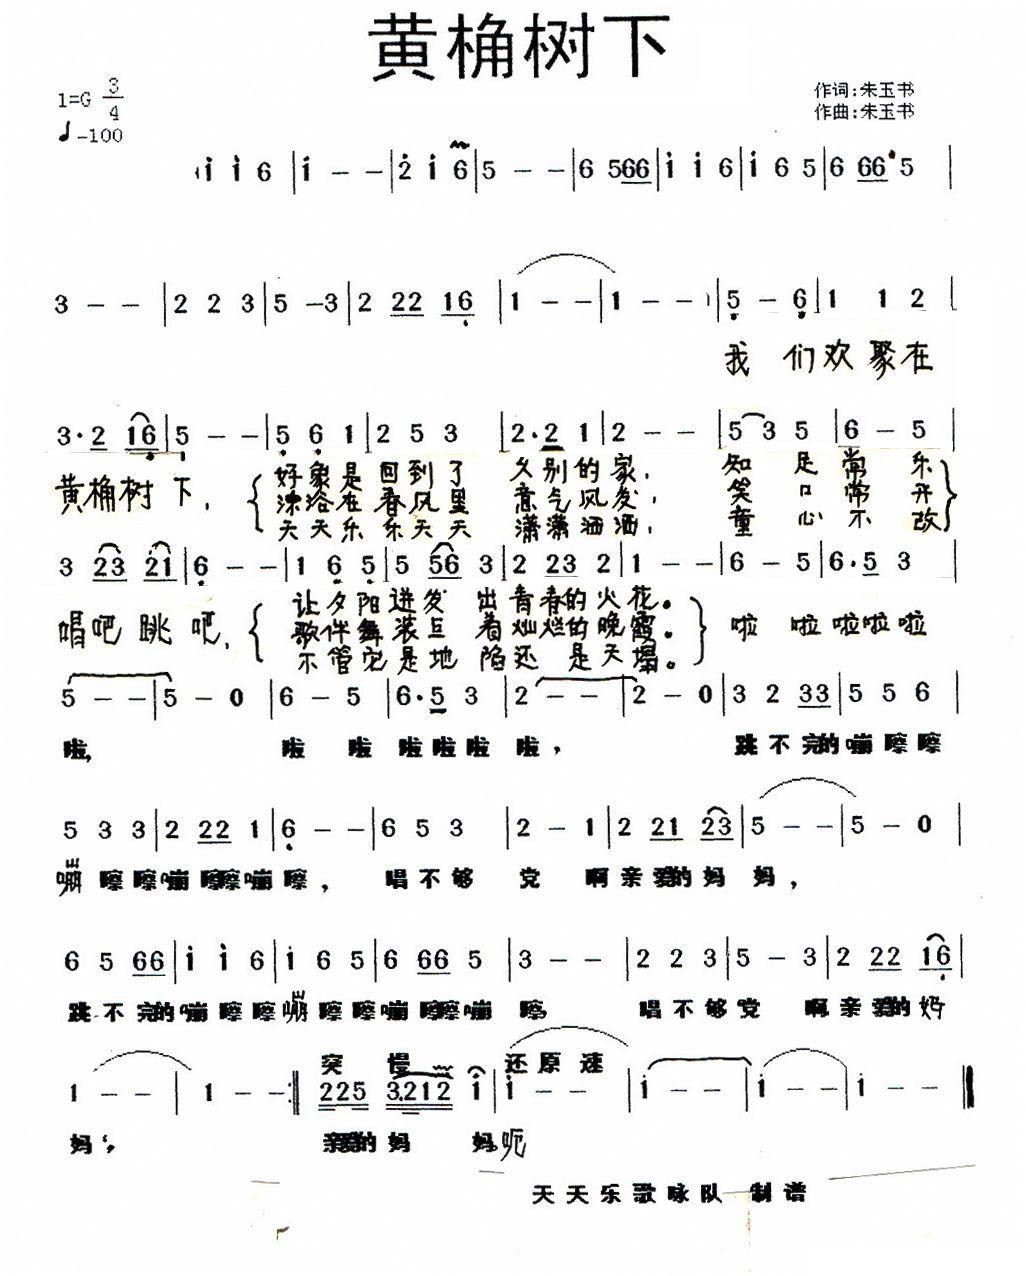 黄桷树下
1=G 3/4
♩-100
作词:朱玉书
作曲:朱玉书
i i 6 | i - - | 2 i 6 | 5 - - | 6 5 66 | i i 6 | i 6 5 | 6 66 5 |
3 - - | 2 2 3 | 5 -3 | 2 22 16 | 1 - - | 1 - - | 5 - 6 | 1 1 2 |
我 们欢聚在
3·2 16 | 5 - - | 5 6 1 | 2 5 3 | 2·2 1 | 2 - - | 5 3 5 | 6 - 5 |
黄桷树下,
好象是回到了 久别的家, 知足常乐
沐浴在春风里 意气风发, 笑口常开
天天乐乐天天 潇潇洒洒, 童心不改
3 23 21 | 6 - - | 1 6 5 | 5 56 3 | 2 23 2 | 1 - - | 6 - 5 | 6·5 3 |
唱吧跳吧,
让夕阳迸发 出青春的火花。
歌伴舞装豆 着灿烂的晚霞。
不管它是地 陷还是天塌。
啦 啦啦啦啦
5 - - | 5 - 0 | 6 - 5 | 6·5 3 | 2 - - | 2 - 0 | 3 2 33 | 5 5 6 |
啦, 啦 啦 啦啦啦 啦, 跳不完的嘣嚓嚓
5 3 3 | 2 22 1 | 6 - - | 6 5 3 | 2 - 1 | 2 21 23 | 5 - - | 5 - 0 |
嘣嚓嚓嘣嚓嚓嘣嚓, 唱不够 党 啊亲爱的妈 妈,
6 5 66 | i i 6 | i 6 5 | 6 66 5 | 3 - - | 2 2 3 | 5 - 3 | 2 22 16 |
跳不完的嘣嚓嚓嘣嚓嚓嘣嚓嚓嘣 嚓, 唱不够党 啊亲爱的妈
突 慢 还原速
1 - - | 1 - - :‖ 225 3.212 i | i - - | i - - | i - - | i - - ‖
妈, 亲爱的妈 妈呃
天天乐歌咏队 制谱